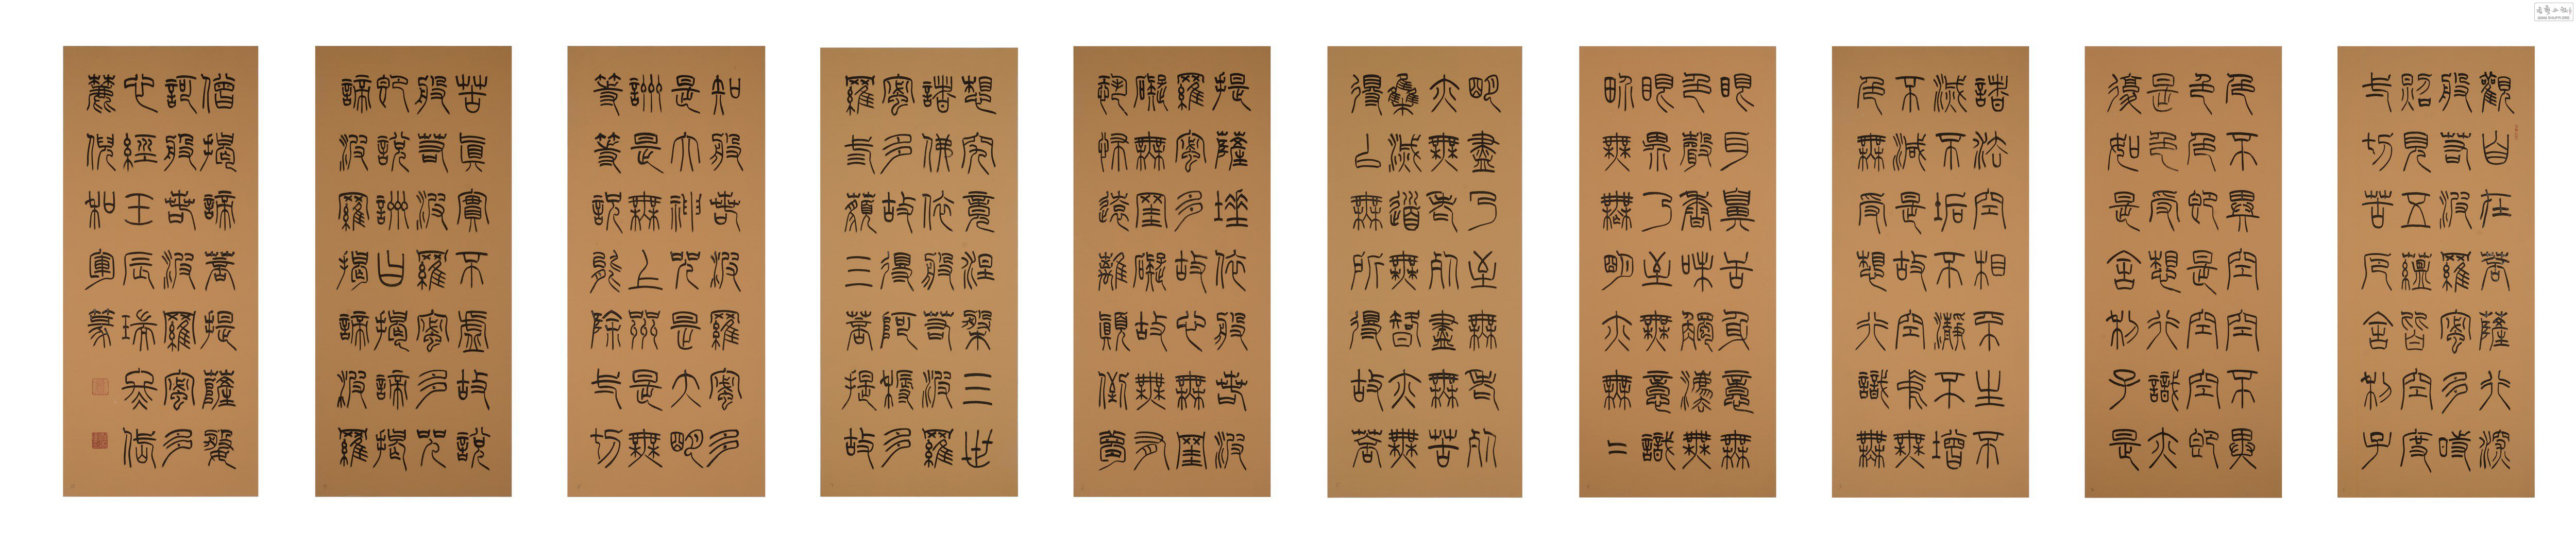 觀自在菩薩行深
般若波羅蜜多時
照見五蘊皆空度
一切苦厄舍利子
色不異空空不異
色色即是空空即
是色受想行識亦
復如是舍利子是
諸法空相不生不
滅不垢不淨不增
不減是故空中無
色無受想行識無
眼耳鼻舌身意無
色聲香味觸法無
眼界乃至無意識
界無無明亦無〻
明盡乃至無老死
亦無老死盡無苦
集滅道無智亦無
得以無所得故菩
提薩埵依般若波
羅蜜多故心無罣
礙無罣礙故無有
恐怖遠離顛倒夢
想究竟涅槃三世
諸佛依般若波羅
蜜多故得阿耨多
羅三藐三菩提故
知般若波羅蜜多
是大神咒是大明
咒是無上咒是無
等等咒說除一切
苦真實不虛故說
般若波羅蜜多咒
即說咒曰揭諦揭
諦波羅揭諦波羅
僧揭諦菩提薩婆
訶般若波羅蜜多
心經壬辰瑞冬岳
麓倪和軍篆